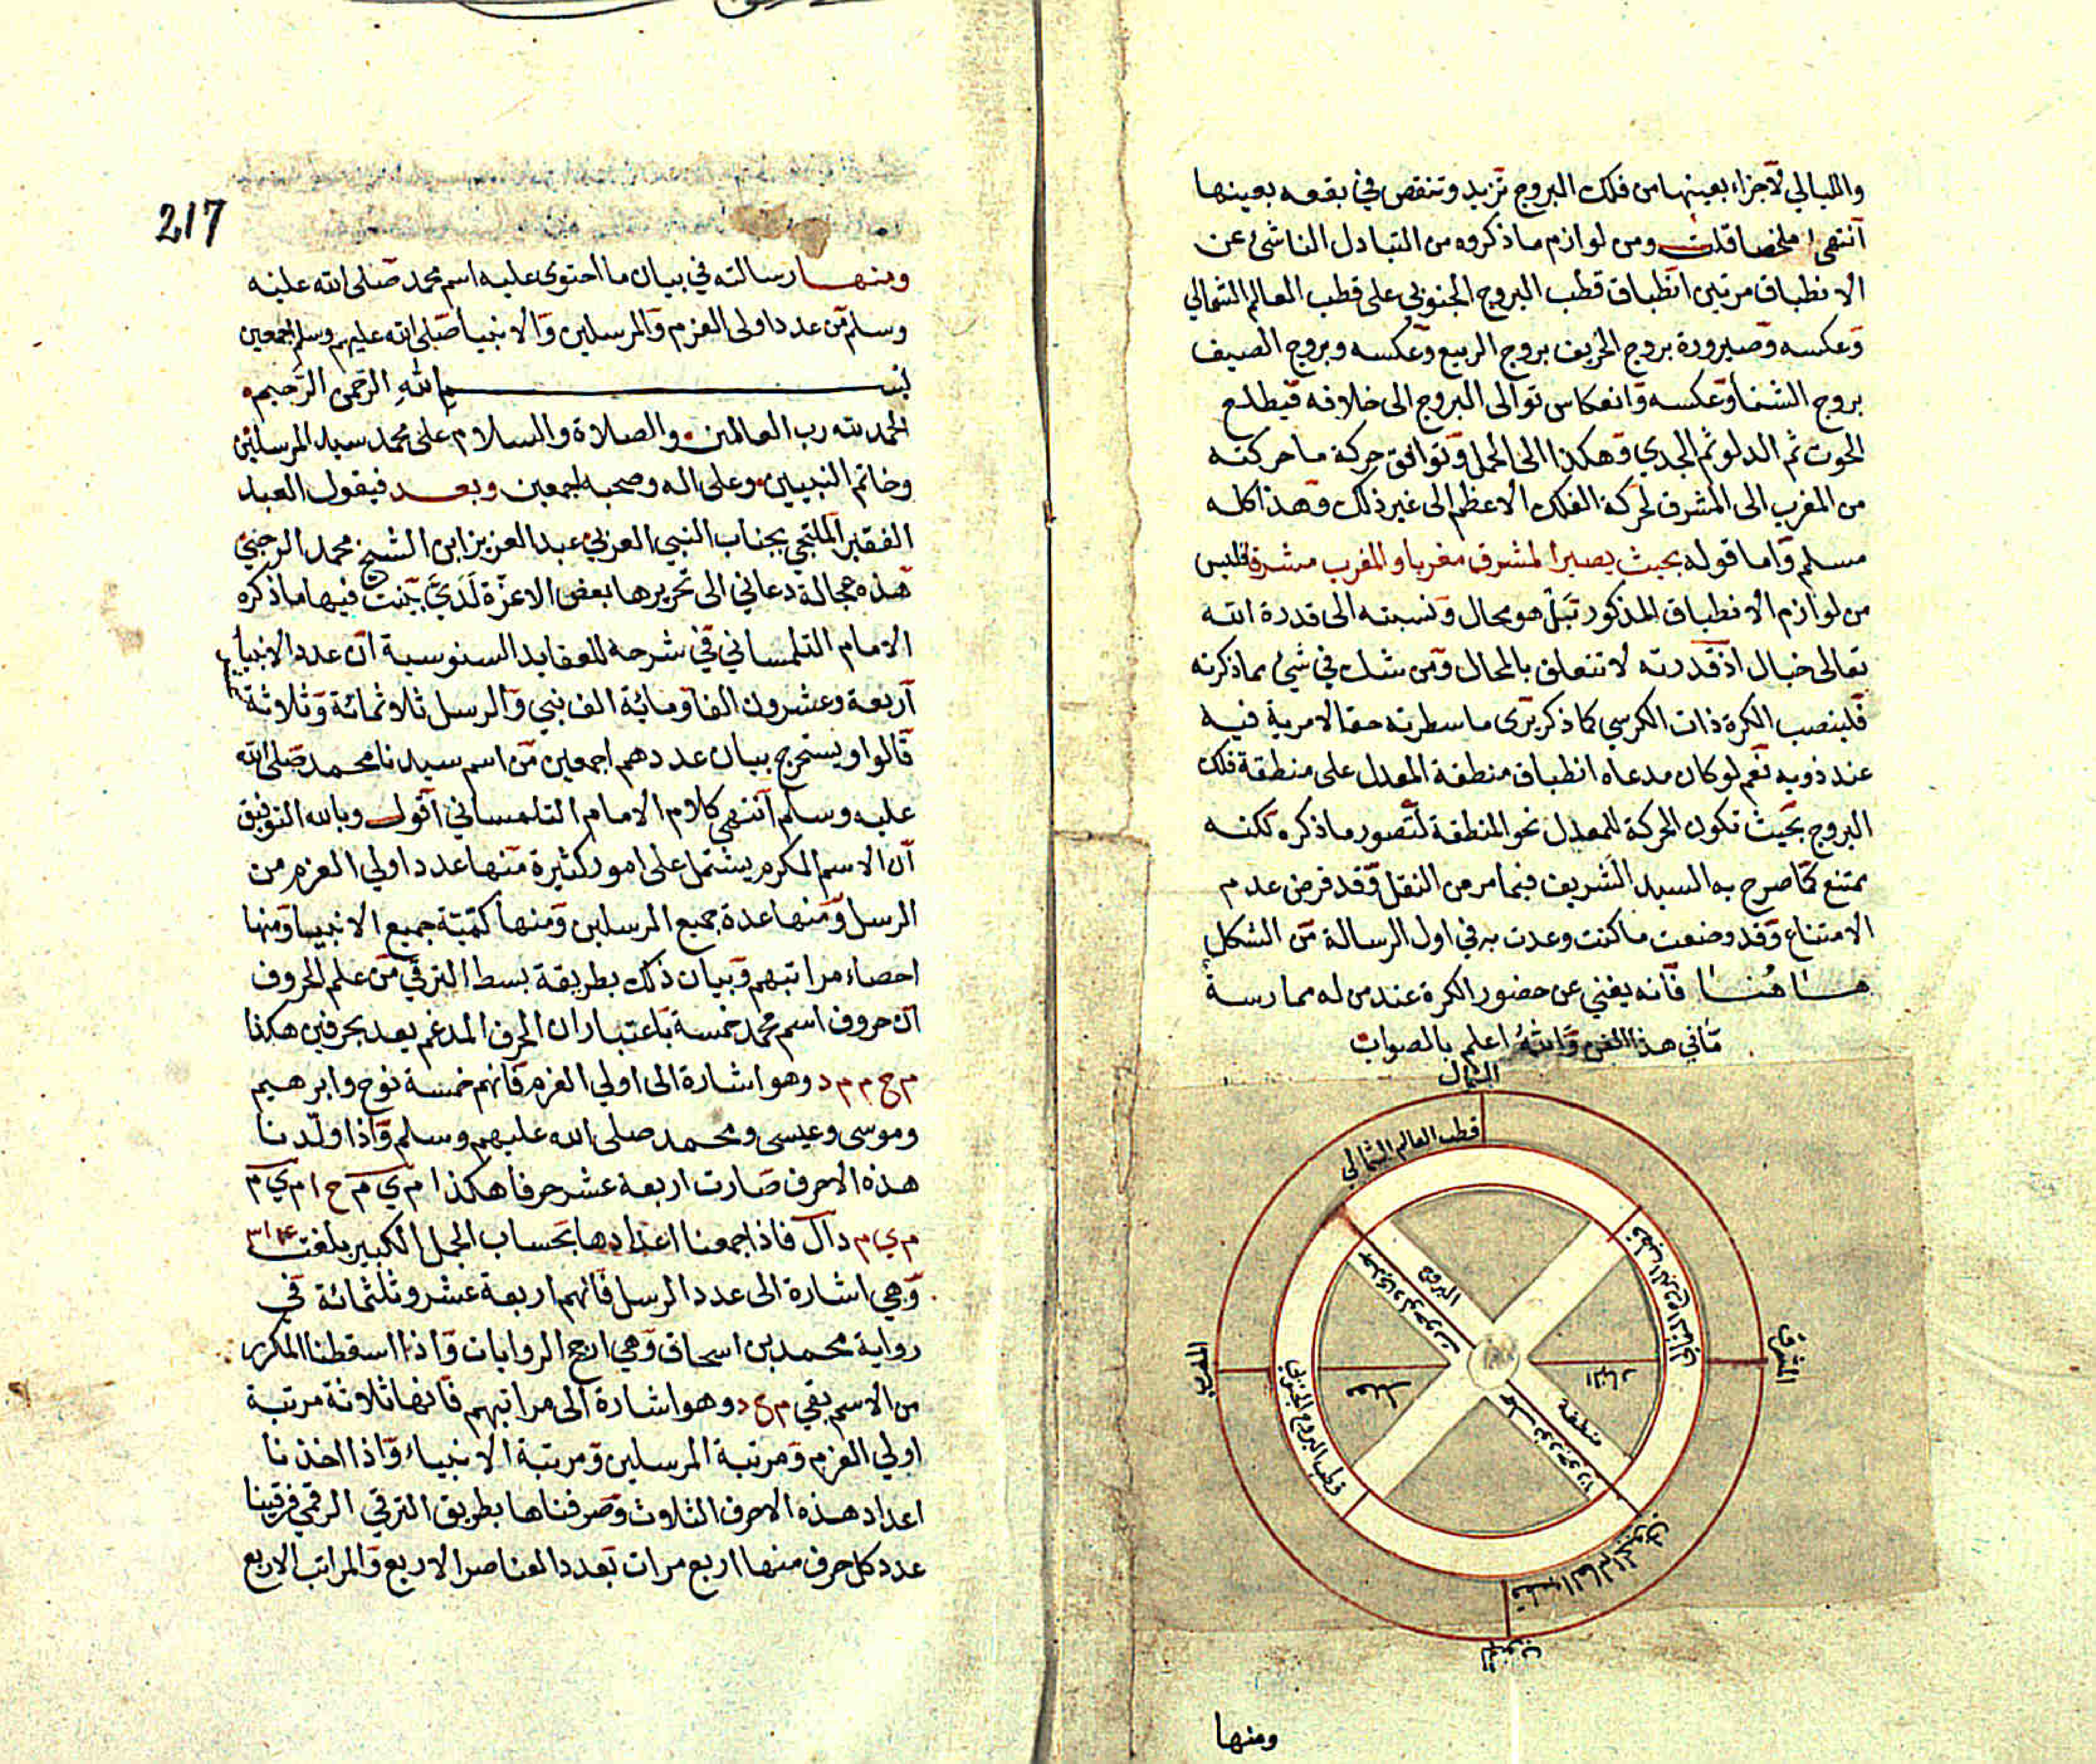 والليالي لاجزاء بعينها من فلك البروج تزيد وتنقص في بقعه بعينها
انتهى ملخصا قلت ومن لوازم ما ذكروه من التبادل الناشئ عن
الانطباق مرتين انطباق قطب البروج الجنوبي على قطب العالم الشمالي
وعكسه وصيرورة بروج الخريف بروج الربيع وعكسه وبروج الصيف
بروج الشتأ وعكسه وانعكاس توالى البروج الى خلافه فيطلع
الحوت ثم الدلو ثم الجدي وهكذا الى الحمل وتوافق حركة ما حركته
من المغرب الى المشرق لحركة الفلك الاعظم الى غير ذلك وهذا كله
مسلم واما قوله بحيث يصير المشرق مغربا والمغرب مشرقا فليس
من لوازم الانطباق المذكور بل هو محال ونسبته الى قدرة الله
تعالى خبال اذ قدرته لا تتعلق بالمحال ومن شك في شيء مما ذكرته
فلينصب الكرة ذات الكرسي كما ذكر يرى ما سطرته حقا لا مرية فيه
عند ذويه نعم لو كان مدعاه انطباق منطقة المعدل على منطقة فلك
البروج بحيث تكون الحركة للمعدل نحو المنطقة لتصور ما ذكره لكنه
ممتنع كما صرح به السيد الشريف فيما مر من النقل وقد فرض عدم
الامتناع وقد وضعت ما كنت وعدت به في اول الرسالة من الشكل
هاهنا فانه يغني عن حضور الكرة عند من له ممارسة
ما في هذا الفن والله اعلم بالصواب
الشمال
قطب العالم الشمالي
قطب البروج الشمالي
المشرق
المغرب
قطب البروج الجنوبي
البروج
جدي دلو حوت
النهار
منطقة
حمل ثور جوزا
قطب العالم الجنوبي
الجنوب
ومنها
217
ومنها رسالته في بيان ما احتوى عليه اسم محمد صلى الله عليه
وسلم من عدد اولى العزم والمرسلين والانبيا صلى الله عليهم وسلم اجمعين
بسم الله الرحمن الرحيم
الحمد لله رب العالمين والصلاة والسلام على محمد سيد المرسلين
وخاتم النبيين وعلى اله وصحبه اجمعين وبعد فيقول العبد
الفقير الملتجي بجناب النبي العربي عبد العزيز ابن الشيخ محمد الرحبي
هذه عجالة دعاني الى تحريرها بعض الاعزة لدي بينت فيها ما ذكره
الامام التلمساني في شرحه للعقايد السنوسية ان عدد الانبيا
اربعة وعشرون الفا ومائة الف نبي والرسل ثلاثمائة وثلاثة
قالوا ويستخرج بيان عددهم اجمعين من اسم سيدنا محمد صلى الله
عليه وسلم انتهى كلام الامام التلمساني اقول وبالله التوفيق
ان الاسم المكرم يشتمل على امور كثيرة منها عدد اولي العزم من
الرسل ومنها عدة جميع المرسلين ومنها كمية جميع الانبيا ومنها
احصاء مراتبهم وبيان ذلك بطريقة بسط الترقي من علم الحروف
ان حروف اسم محمد خمسة باعتبار ان الحرف المدغم يعد بحرفين هكذا
م ح م م د وهو اشارة الى اولي العزم فانهم خمسة نوح وابرهيم
وموسى وعيسى ومحمد صلى الله عليهم وسلم واذا ولدنا
هذه الاحرف صارت اربعة عشر حرفا هكذا م ي م ح ا م ي م
م ي م دال فاذا جمعنا اعدادها بحساب الجمل الكبير بلغت ٣١٤
وهي اشارة الى عدد الرسل فانهم اربعة عشر وثلثمائة في
رواية محمد بن اسحاق وهي ارجح الروايات واذا اسقطنا المكرر
من الاسم بقي م ح د وهو اشارة الى مراتبهم فانها ثلاثة مرتبة
اولي العزم ومرتبة المرسلين ومرتبة الانبياء واذا اخذنا
اعداد هذه الاحرف الثلاث وصرفناها بطريق الترقي الرقمي فرقينا
عدد كل حرف منها اربع مرات بعدد العناصر الاربع والمراتب الاربع